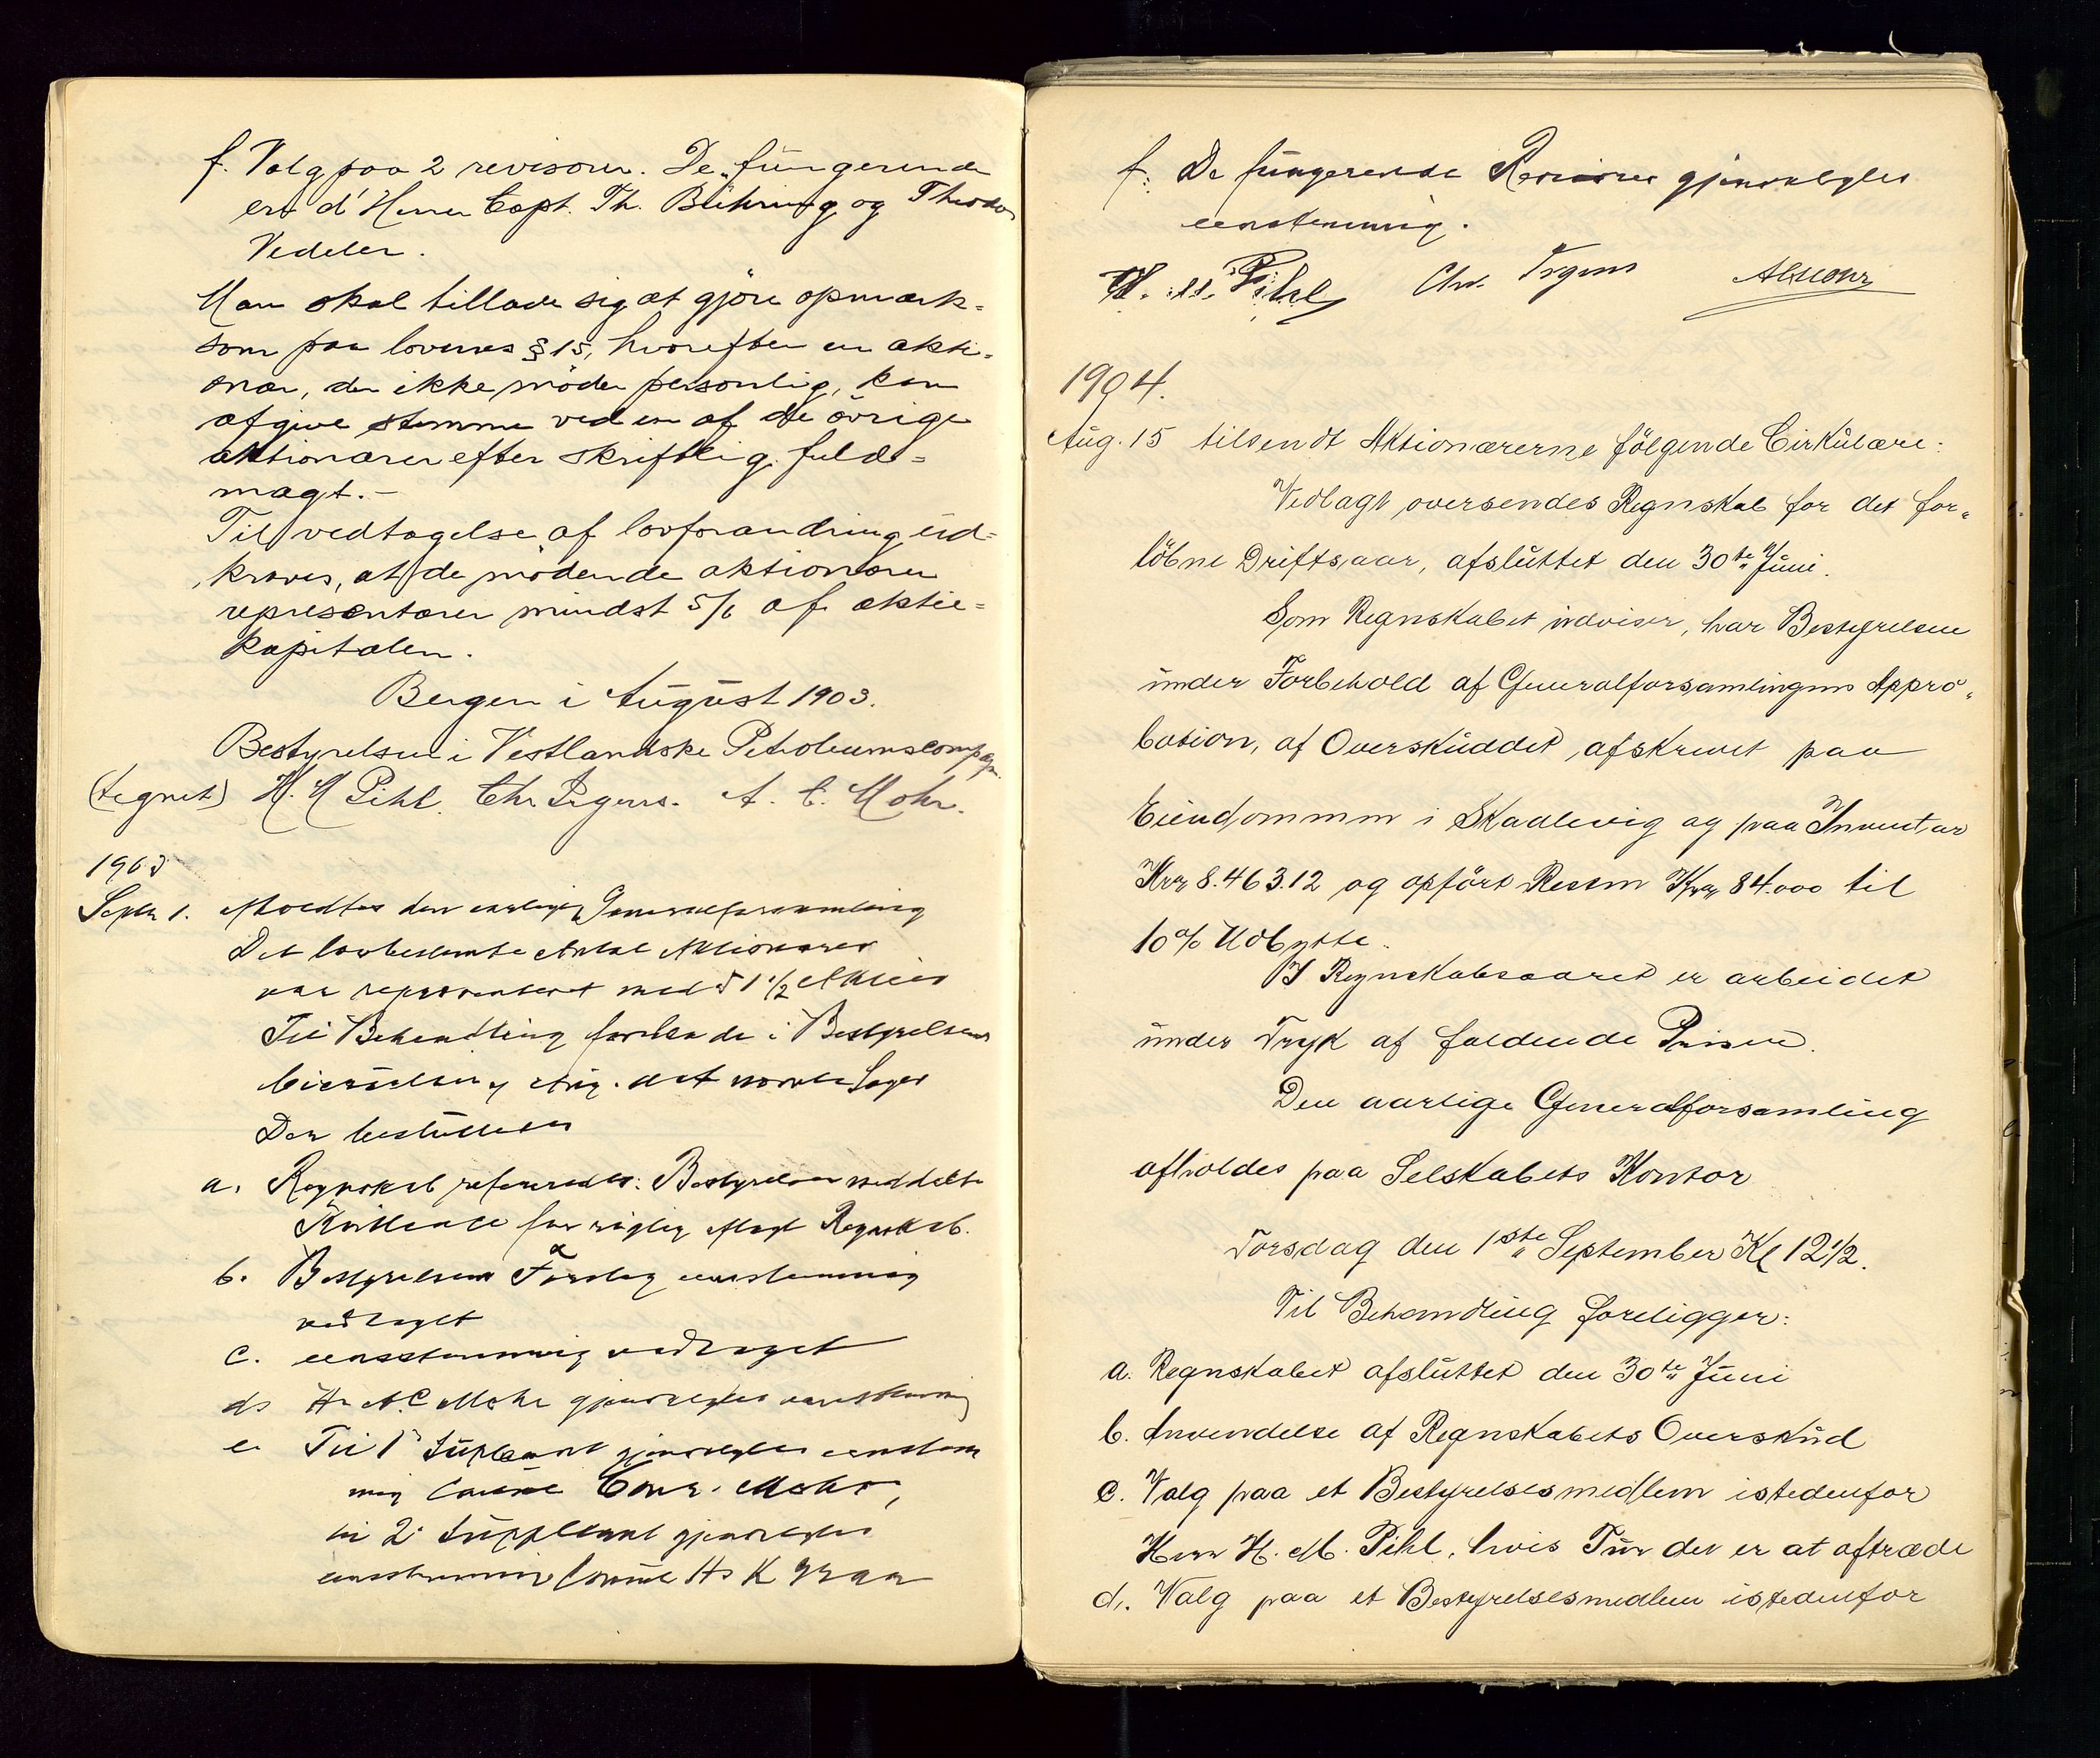 f. Valg paa 2 revisorer. De fungerende
ere d'Herrer Capt. Th. Bühring og Theodor
Vedeler.
Man skal tillade sig at gjöre opmærk=
som paa lovenes § 15, hvorefter en aktio=
nær, der ikke möder personlig, kan
afgive stemme ved en af de övrige
aktionærer efter skriftlig fuld=
magt.-
Til vedtagelse af lovforandring ud=
kræves, at de mödende aktionærer
representerer mindst 5/6 af aktie=
kapitalen.
Bergen i August 1903.
Bestyrelsen i Vestlandske Petroleumscompagn.
(tegnet) H. M Pihl. Chr Irgens. A. C. Mohr.
1903
Septr 1. Afholdtes den aarlige Generalforsamling
Det lovbestemte Antal Aktionærer
var repræsenteret med 51 1/2 Aktier
Til Behandling forelaa de i Bestyrelsens
Cirkulære af Aug. d A nævnte Sager
Der besluttedes
a. Regnskab refereredes. Bestyrelsen meddeltes
Kvittance for rigtig aflagt Regnskab.
b. Bestyrelsens Forslag eenstemmig
vedtaget
c. eensstemmig vedtaget
d Hr A.C. Mohr gjenvalgtes eenstemmig
e. Til 1ste Suppleant gjenvalgtes eenstem
mig Consul Conr. Mohr,
til 2. Suppleant gjenvalgtes
eensstemmig Consul H K Graa
f. De fungerende Revisorer gjenvalgtes
eenstemmig.
H. M. Pihl Chr. Irgens ACMohr
1904.
Aug. 15 tilsendt Aktionærerne fölgende Cirkulære:
Vedlagt oversendes Regnskab for det for=
löbne Driftsaar, afsluttet den 30te Juni.
Som Regnskabet udviser, har Bestyrelsen
under Forbehold af Generalforsamlingens Appro=
bation, af Overskuddet afskrevet paa
Eiendommen i Skadlevig og paa Inventar
Kr. 8.463.12 og opfört Resten Kr. 84.000 til
10% Udbytte.
I Regnskabsaaret er arbeidet
under Tryk af faldende Priser.
Den aarlige Generalforsamling
afholdes paa Selskabets Kontor
Torsdag den 1ste September Kl 12 1/2.
Til Behandling foreligger:
a. Regnskabet afsluttet den 30te Juni
b. Anvendelse af Regnskabets Overskud
c. Valg paa et Bestyrelsesmedlem istedenfor
Herr H. M. Pihl, hvis Tur det er at aftræde
d. Valg paa et Bestyrelsesmedlem istedenfor